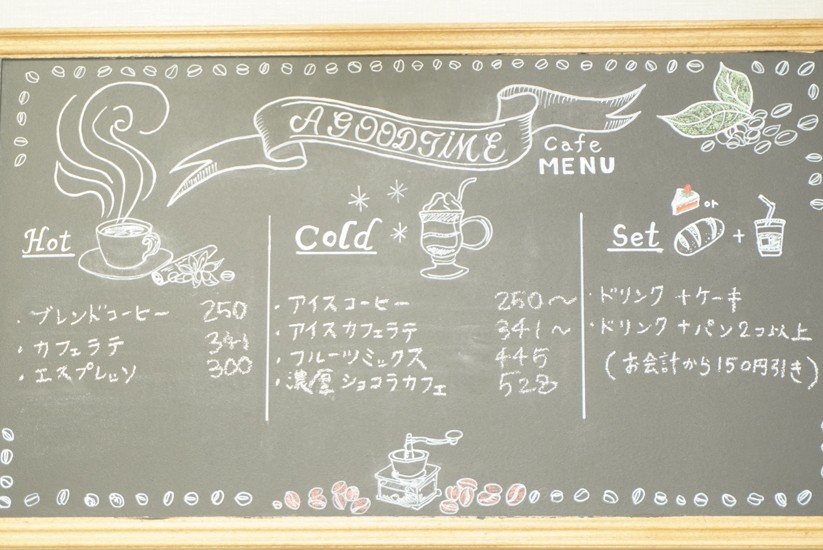 A GOODTiME
Cafe
MENU
Hot
・ブレンドコーヒー 250
・カフェラテ 341
・エスプレッソ 300
Cold
・アイスコーヒー 250〜
・アイスカフェラテ 341〜
・フルーツミックス 445
・濃厚ショコラカフェ 528
or
Set
+
・ドリンク+ケーキ
・ドリンク+パン2つ以上
(お会計から150円引き)